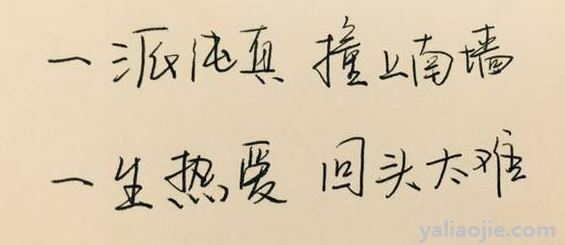 一派纯真 撞上南墙
一生热爱 回头太难
yaliaojie.com